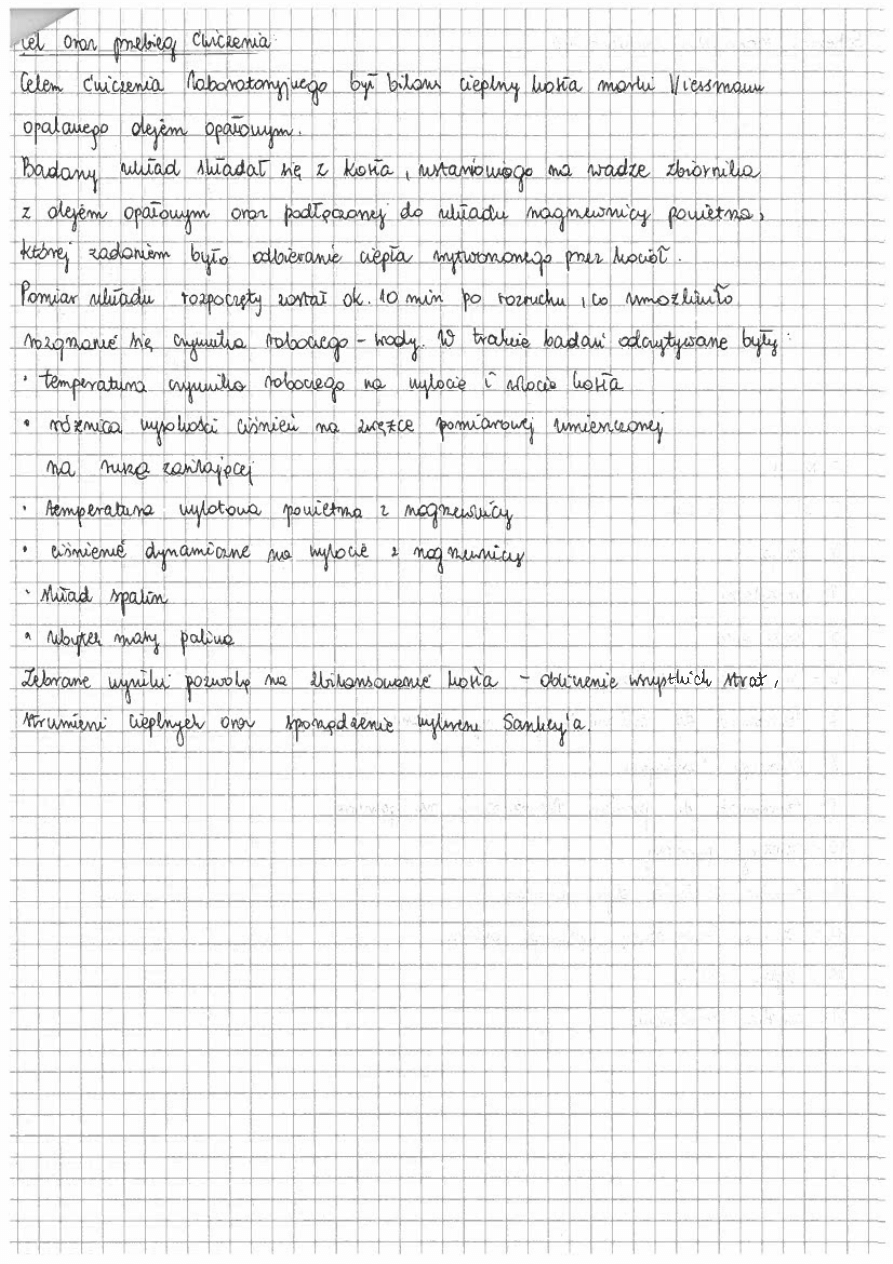 Cel oraz przebieg ćwiczenia:
Celem ćwiczenia laboratoryjnego był bilans cieplny kotła marki Viessmann
opalanego olejem opałowym.
Badany układ składał się z kotła, ustawionego na wadze zbiornika
z olejem opałowym oraz podłączonej do układu nagrzewnicy powietrza,
której zadaniem było odbieranie ciepła wytworzonego przez kocioł.
Pomiar układu rozpoczęty został ok. 10 min po rozruchu, co umożliwiło
rozgrzanie się czynnika roboczego - wody. W trakcie badań odczytywane były:
• temperatura czynnika roboczego na wylocie i wlocie kotła
• różnica wysokości ciśnień na zwężce pomiarowej umieszczonej
na rurze zasilającej
• temperatura wylotowa powietrza z nagrzewnicy
• ciśnienie dynamiczne na wylocie z nagrzewnicy
• skład spalin
• ubytek masy paliwa
Zebrane wyniki pozwolą na zbilansowanie kotła - obliczenie wszystkich strat,
strumieni cieplnych oraz sporządzenie wykresu Sankey'a.